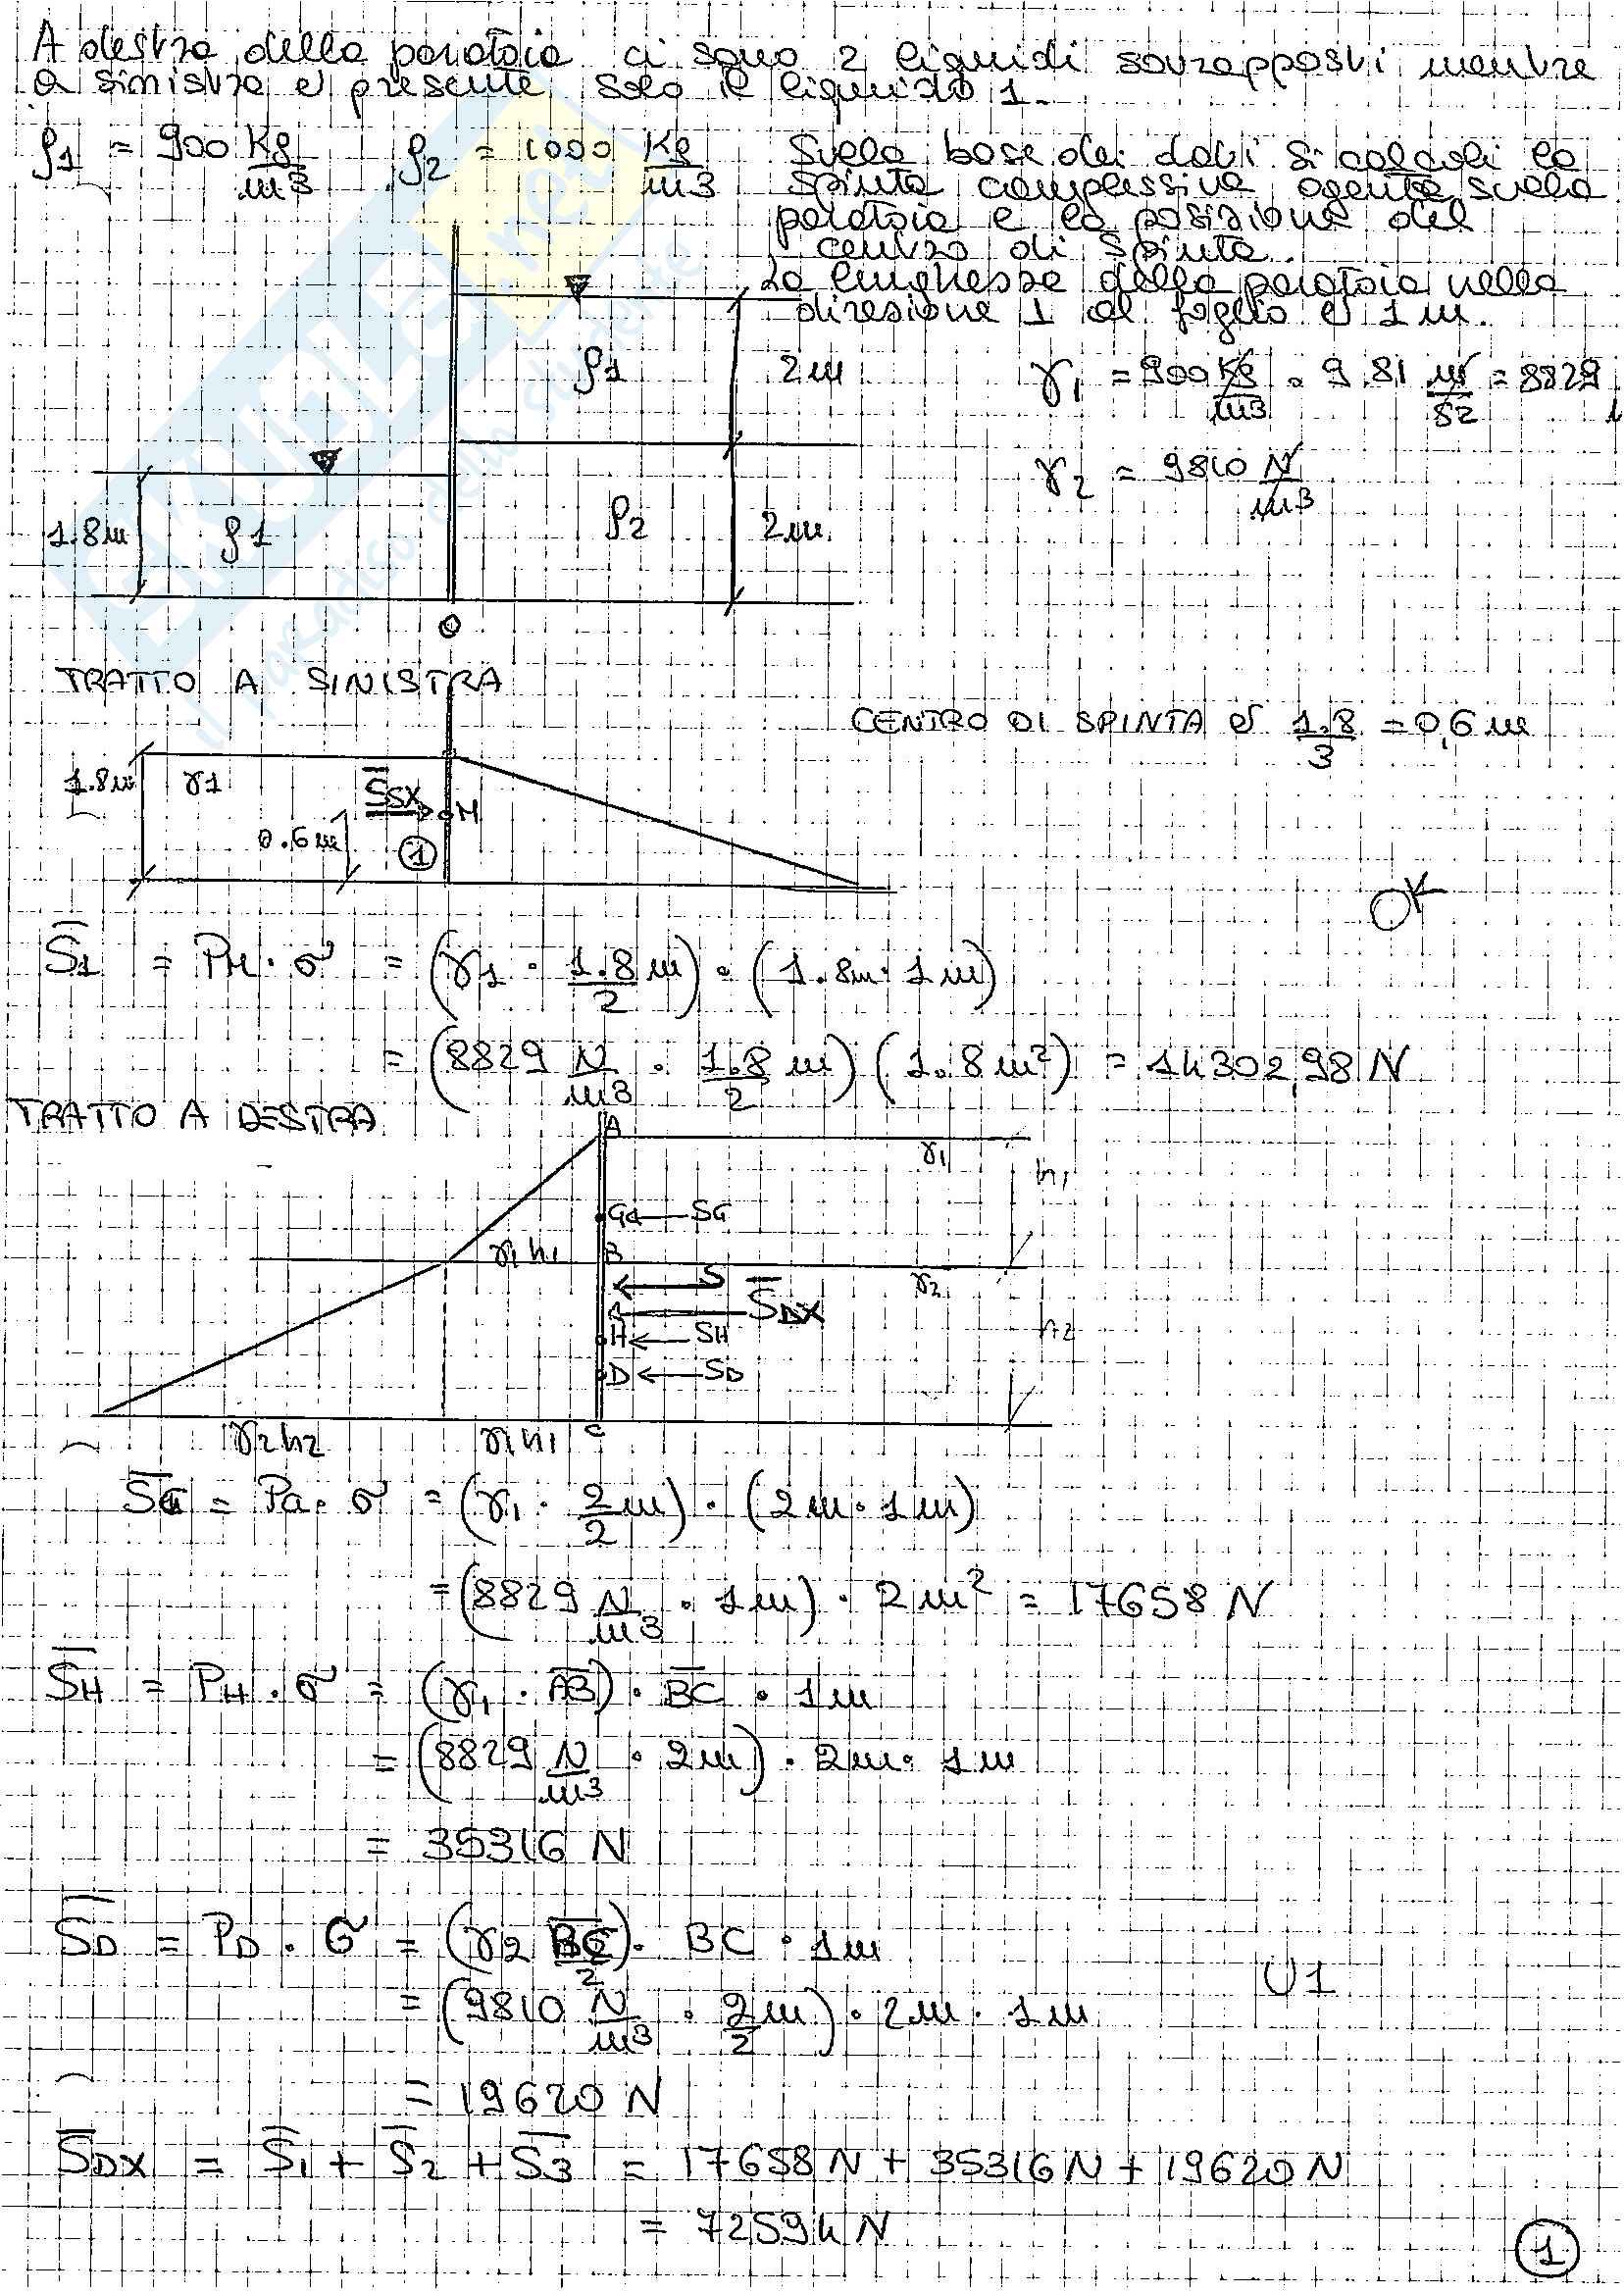 A destra della paratoia ci sono 2 liquidi sovrapposti mentre
a sinistra e' presente solo il liquido 1.
ρ1 = 900 Kg/m3 ρ2 = 1000 Kg/m3
Sulla base dei dati si calcoli la
spinta complessiva agente sulla
paratoia e la posizione del
centro di spinta.
La lunghezza della paratoia nella
direzione ⊥ al foglio e' 1 m.
ρ1 2m
γ1 = 900 Kg/m3 · 9.81 m/s2 = 8829
γ2 = 9810 N/m3
1.8m ρ1 ρ2 2m
O
TRATTO A SINISTRA
CENTRO DI SPINTA e' 1.8/3 = 0,6 m
1.8m γ1 SSX M
0.6m 1
OK
S̅1 = PM · σ = (γ1 · 1.8/2 m) · (1.8m · 1m)
= (8829 N/m3 · 1.8/2 m) (1.8 m²) = 14302,98 N
TRATTO A DESTRA
A γ1 h1
G SG
γ1 h1 B
S γ2
S̅DX
H SH h2
D SD
γ2h2 γ1h1 C
S̅G = PG · σ = (γ1 · 2/2 m) · (2m · 1m)
= (8829 N/m3 · 1m) · 2m² = 17658 N
S̅H = PH · σ = (γ1 · A̅B̅) · B̅C̅ · 1m
= (8829 N/m3 · 2m) · 2m · 1m
= 35316 N
S̅D = PD · σ = (γ2 B̅C̅/2) · BC · 1m
U1
= (9810 N/m3 · 2/2 m) · 2m · 1m
= 19620 N
S̅DX = S̅1 + S̅2 + S̅3 = 17658 N + 35316 N + 19620 N
= 72594 N
1